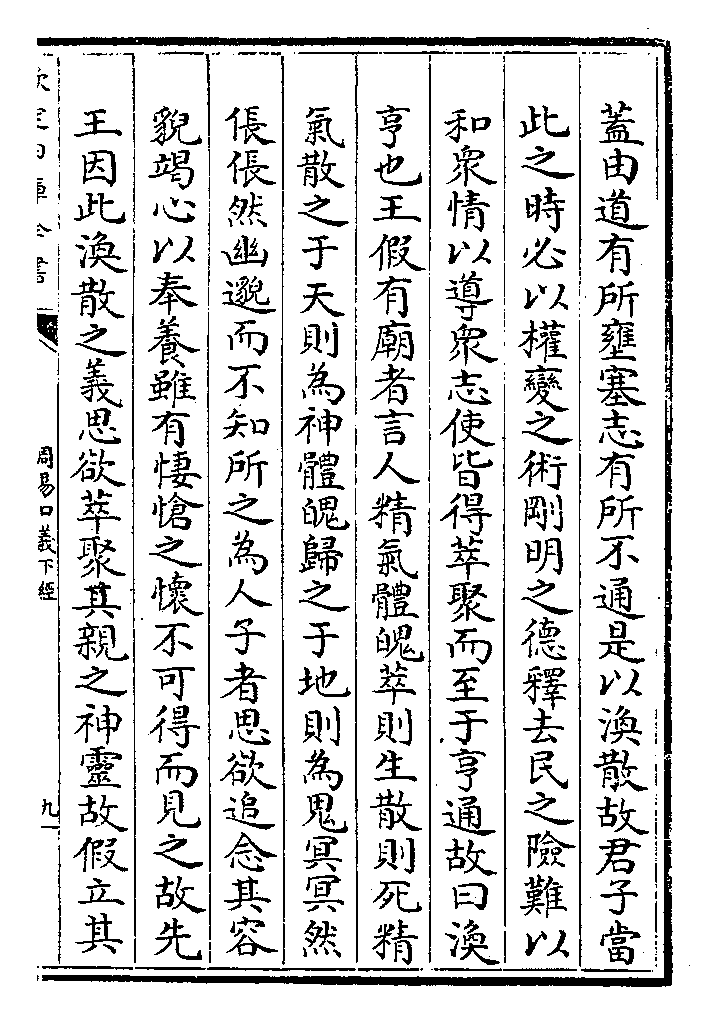 蓋由道有所壅塞志有所不通是以渙散故君子當
此之時必以權變之術剛明之德釋去民之險難以
和衆情以導衆志使皆得萃聚而至于亨通故曰渙
亨也王假有廟者言人精氣體魄萃則生散則死精
氣散之于天則為神體魄歸之于地則為鬼冥冥然
倀倀然幽邈而不知所之為人子者思欲追念其容
貌竭心以奉養雖有悽愴之懷不可得而見之故先
王因此渙散之義思欲萃聚其親之神靈故假立其
欽定四庫全書
周易口義下經
九